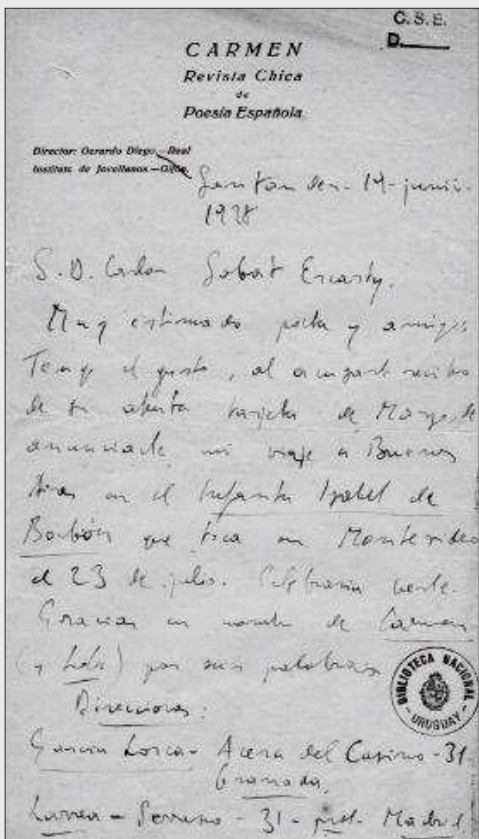 C. S. E.
D.
CARMEN
Revista Chica
de
Poesía Española
Director: Gerardo Diego.—Real
Instituto de Jovellanos.—Gijón.
Santander - 14 - junio -
1928
S. D. Carlos Sabat Ercasty.
Muy estimado poeta y amigo
Tengo el gusto, al acusarle recibo
de su atenta tarjeta de Mayo, de
anunciarle mi viaje a Buenos
Aires en el Infanta Isabel de
Borbón que toca en Montevideo
el 23 de julio. Celebraría verle.
Gracias en nombre de Carmen
(y Lola) por sus palabras
Direcciones:
BIBLIOTECA NACIONAL
- URUGUAY -
García Lorca - Acera del Casino - 31
Granada.
Larrea - Serrano - 31 - Madrid